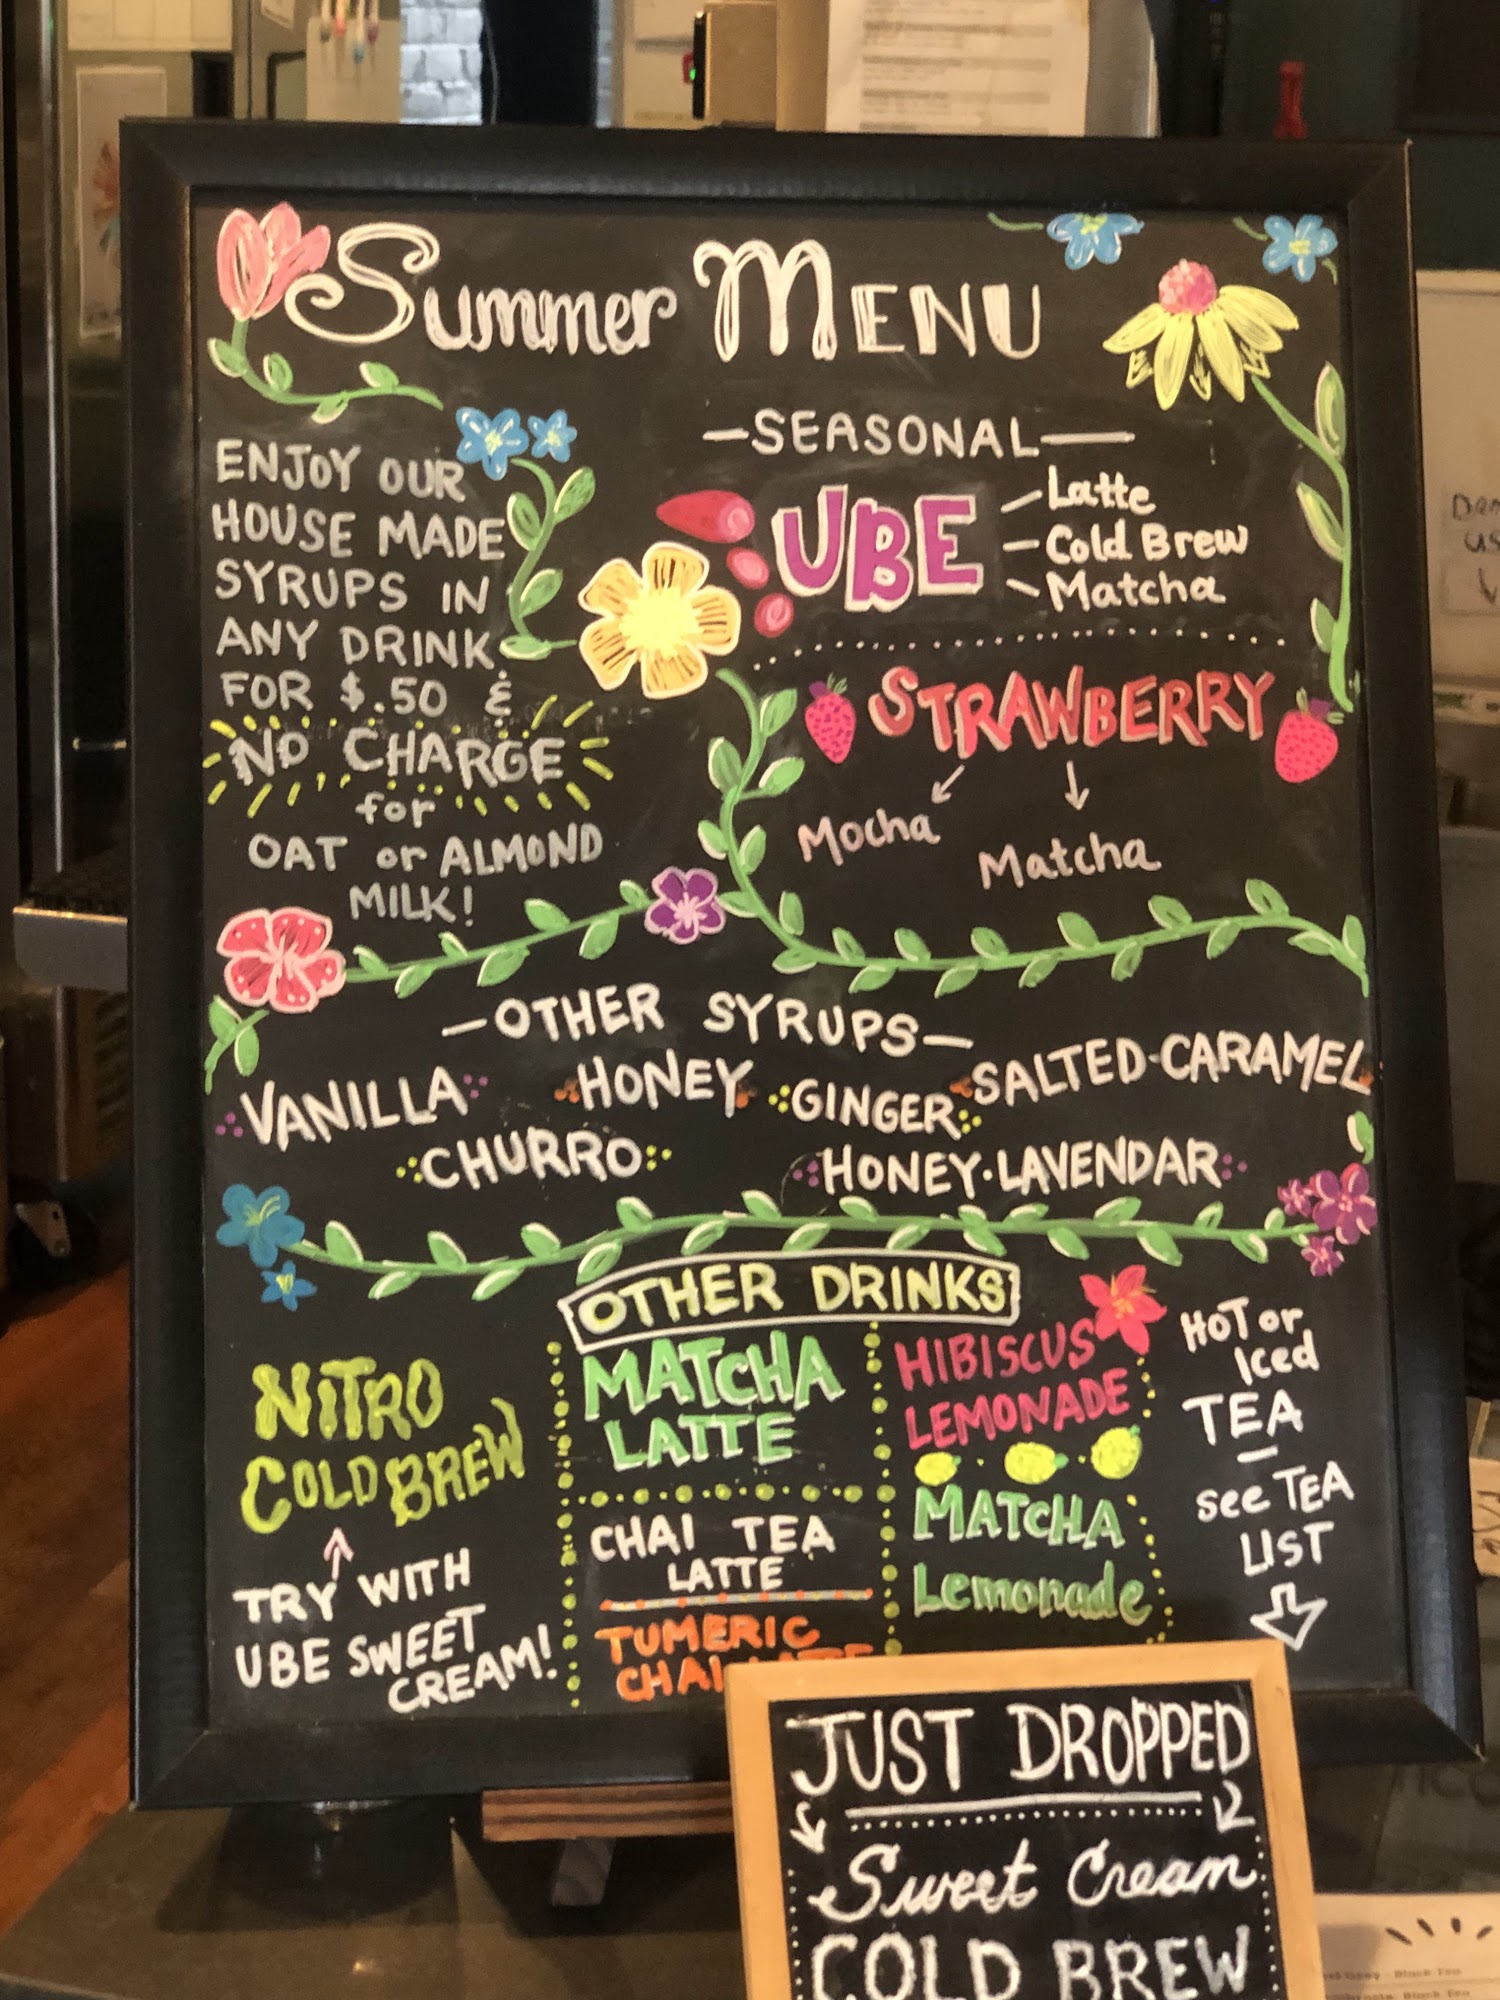 Summer MENU
ENJOY OUR
HOUSE MADE
SYRUPS IN
ANY DRINK
FOR $.50 &
NO CHARGE
for
OAT or ALMOND
MILK!
—SEASONAL—
UBE
Latte
Cold Brew
Matcha
STRAWBERRY
Mocha
Matcha
—OTHER SYRUPS—
VANILLA HONEY GINGER SALTED-CARAMEL
CHURRO HONEY·LAVENDAR
OTHER DRINKS
NITRO
COLD BREW
TRY WITH
UBE SWEET
CREAM!
MATCHA
LATTE
CHAI TEA
LATTE
TUMERIC
CHAI
HIBISCUS
LEMONADE
MATCHA
Lemonade
HOT or
Iced
TEA
—
see TEA
LIST
JUST DROPPED
Sweet Cream
COLD BREW